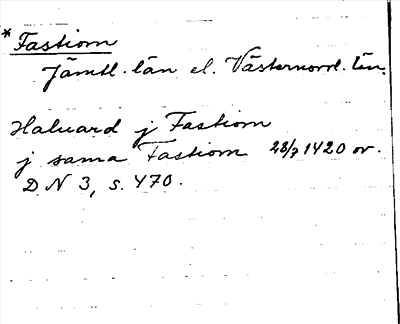 *Fastiorn
Jämtl. län el. Västernorrl. län.
Haluard j Fastiorn
j sama Fastiorn 28/7 1420 or.
DN 3, s. 470.